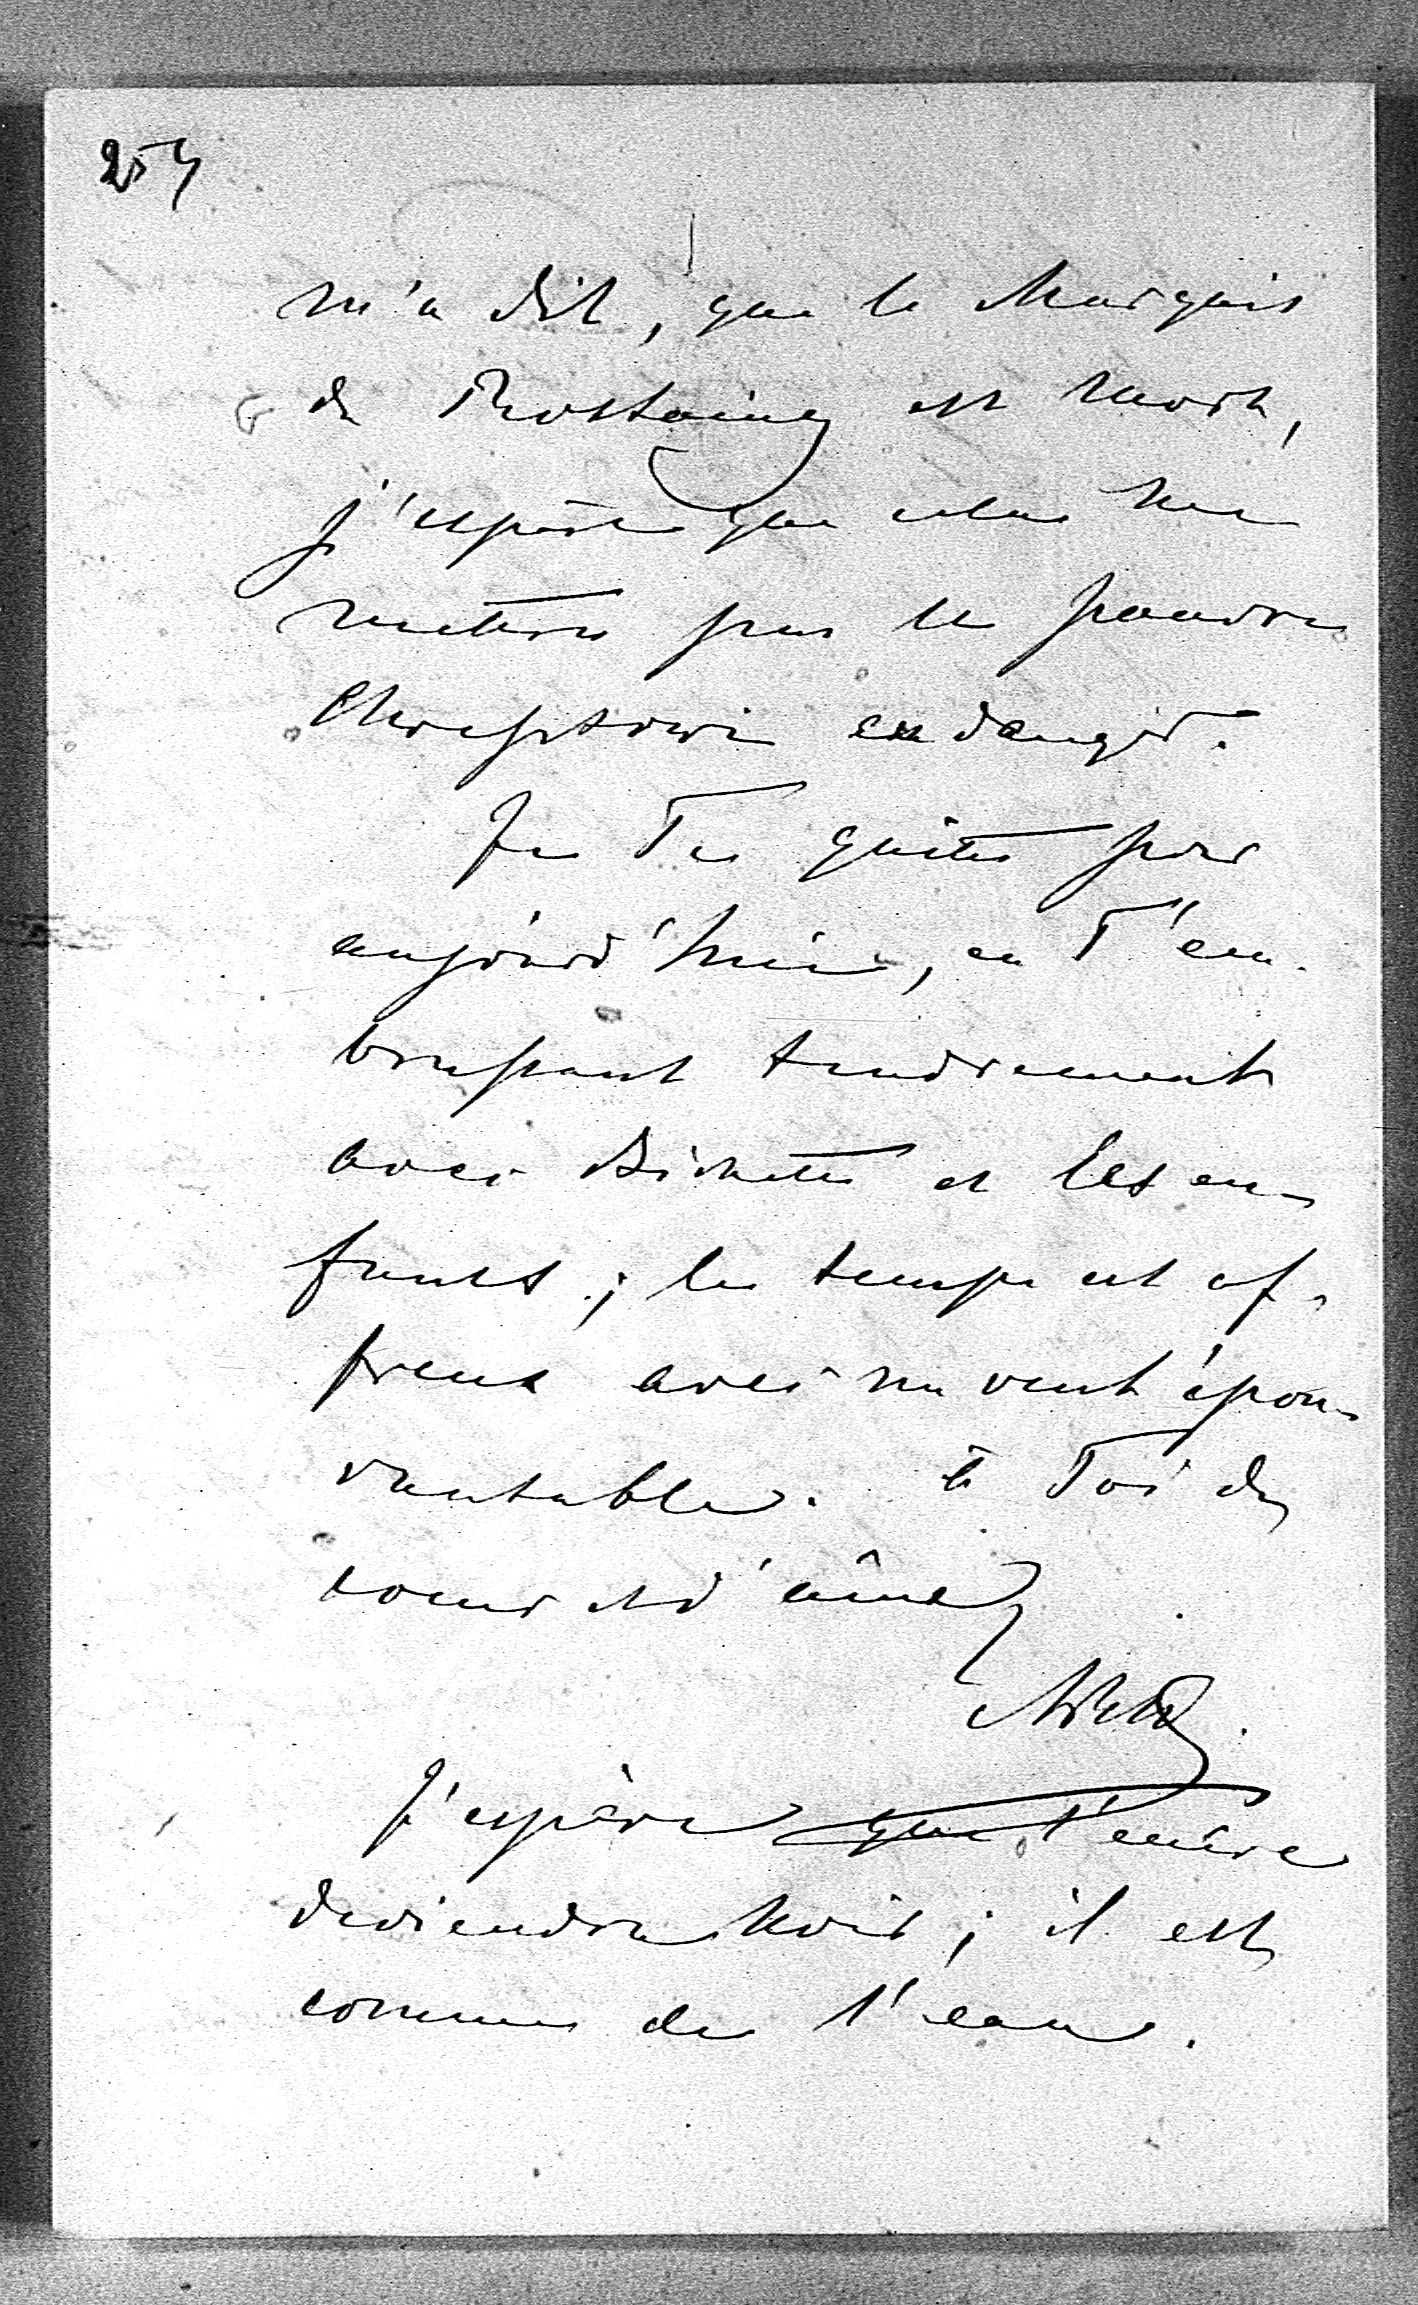 257
m'a dit, que le Marquis
de Rostaing est mort,
j'espère que cela ne
mettra pas le pauvre
Chreptowi en danger.
Je Te quitte pour
aujourd'hui, en T'em-
brassant tendrement
avec Minette et les en-
fants; le temps est af-
freux avec un vent épou-
vantable. à Toi de
coeur et d'âme
J'espère que l'encre
deviendra noire; il est
comme de l'eau.